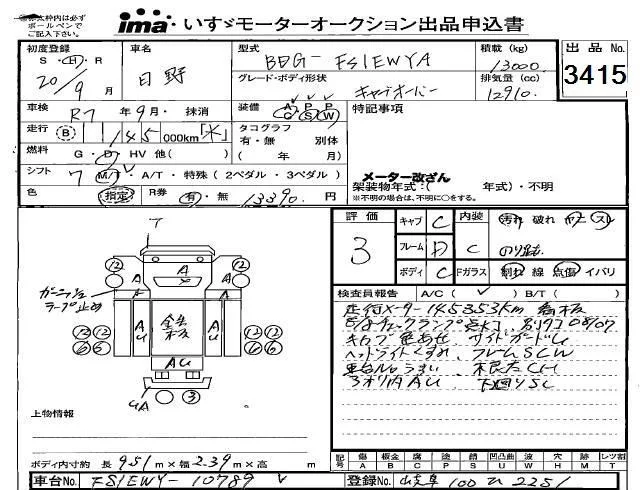 黒太枠内は必ず
ボールペンで
ご記入下さい。
ima いすゞモーターオークション出品申込書
初度登録 S・H・R 20/9月
車名 日野
型式 BDG-FS1EWYA
積載(kg) 13000
出品No. 3415
グレード・ボディ形状 キャブオーバー
排気量(cc) 12910
車検 R7年9月・抹消
装備 A C P S P W
特記事項
走行 B 1145 000km「」
タコグラフ 有・無 別体 ( 年 月)
燃料 G・D・HV 他( )
メーター改ざん
シフト 7 M/T・A/T・特殊(2ペダル・3ペダル)
架装物年式:( 年式)・不明
※不明の場合は、不明に○をする。
色 指定 R券 有・無 13390 円
評価 3
キャブ C 内装 汚れ 破れ ヤニ スレ
フレーム D C のり込も
ボディ C Fガラス 割れ 線 点傷 イバリ
T
12 12
A
A A
ガーニッシュ
ラープ止め
A A
12 12 鉄板 12 12
6 6 AU AU 6 6
AU
UA 3
検査員報告 A/C( ) B/T( )
走行メーター145353km 看板
キャブ色あせ、サイドガードU
ヘッドライトくすみ、フレームSCW
車台Noうすい
3オリ内AU 下回りSC
上物情報
ボディ内寸約 長 951 m×幅 2.39 m×高 m
記号 傷 A 板金 B 腐 C 塗 P 錆 S 凹凸曲 U 波 W 穴 H 跡 M レツ割 T
車台No. FS1EWY-10789
登録No. 岐阜 100 ひ 2251